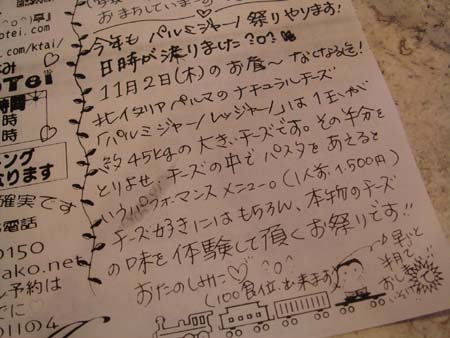 おまかしています
^o^)亭』
otei.com
s.com/ktai/
oTei
時間
時
時
ング
なります
確実です
電話
0150
ako.net
ル予約は
でに
011の4
今年も パルミジャーノ 祭りやります!
日時が決りました?o?
11月2日(木)のお昼〜 なくなる迄!
北イタリア パルマのナチュラルチーズ
「パルミジャーノ レッジャーノ」は1玉が
約45kgの大きいチーズです。その半分を
とりよせ、チーズの中でパスタをあえると
いうパフォーマンスメニュー。(1人前 1,500円)
チーズ好きにはもちろん、本物のチーズ
の味を体験して頂くお祭りです!!
おたのしみに♡
(100食位、出来ます)
早いと
半月で